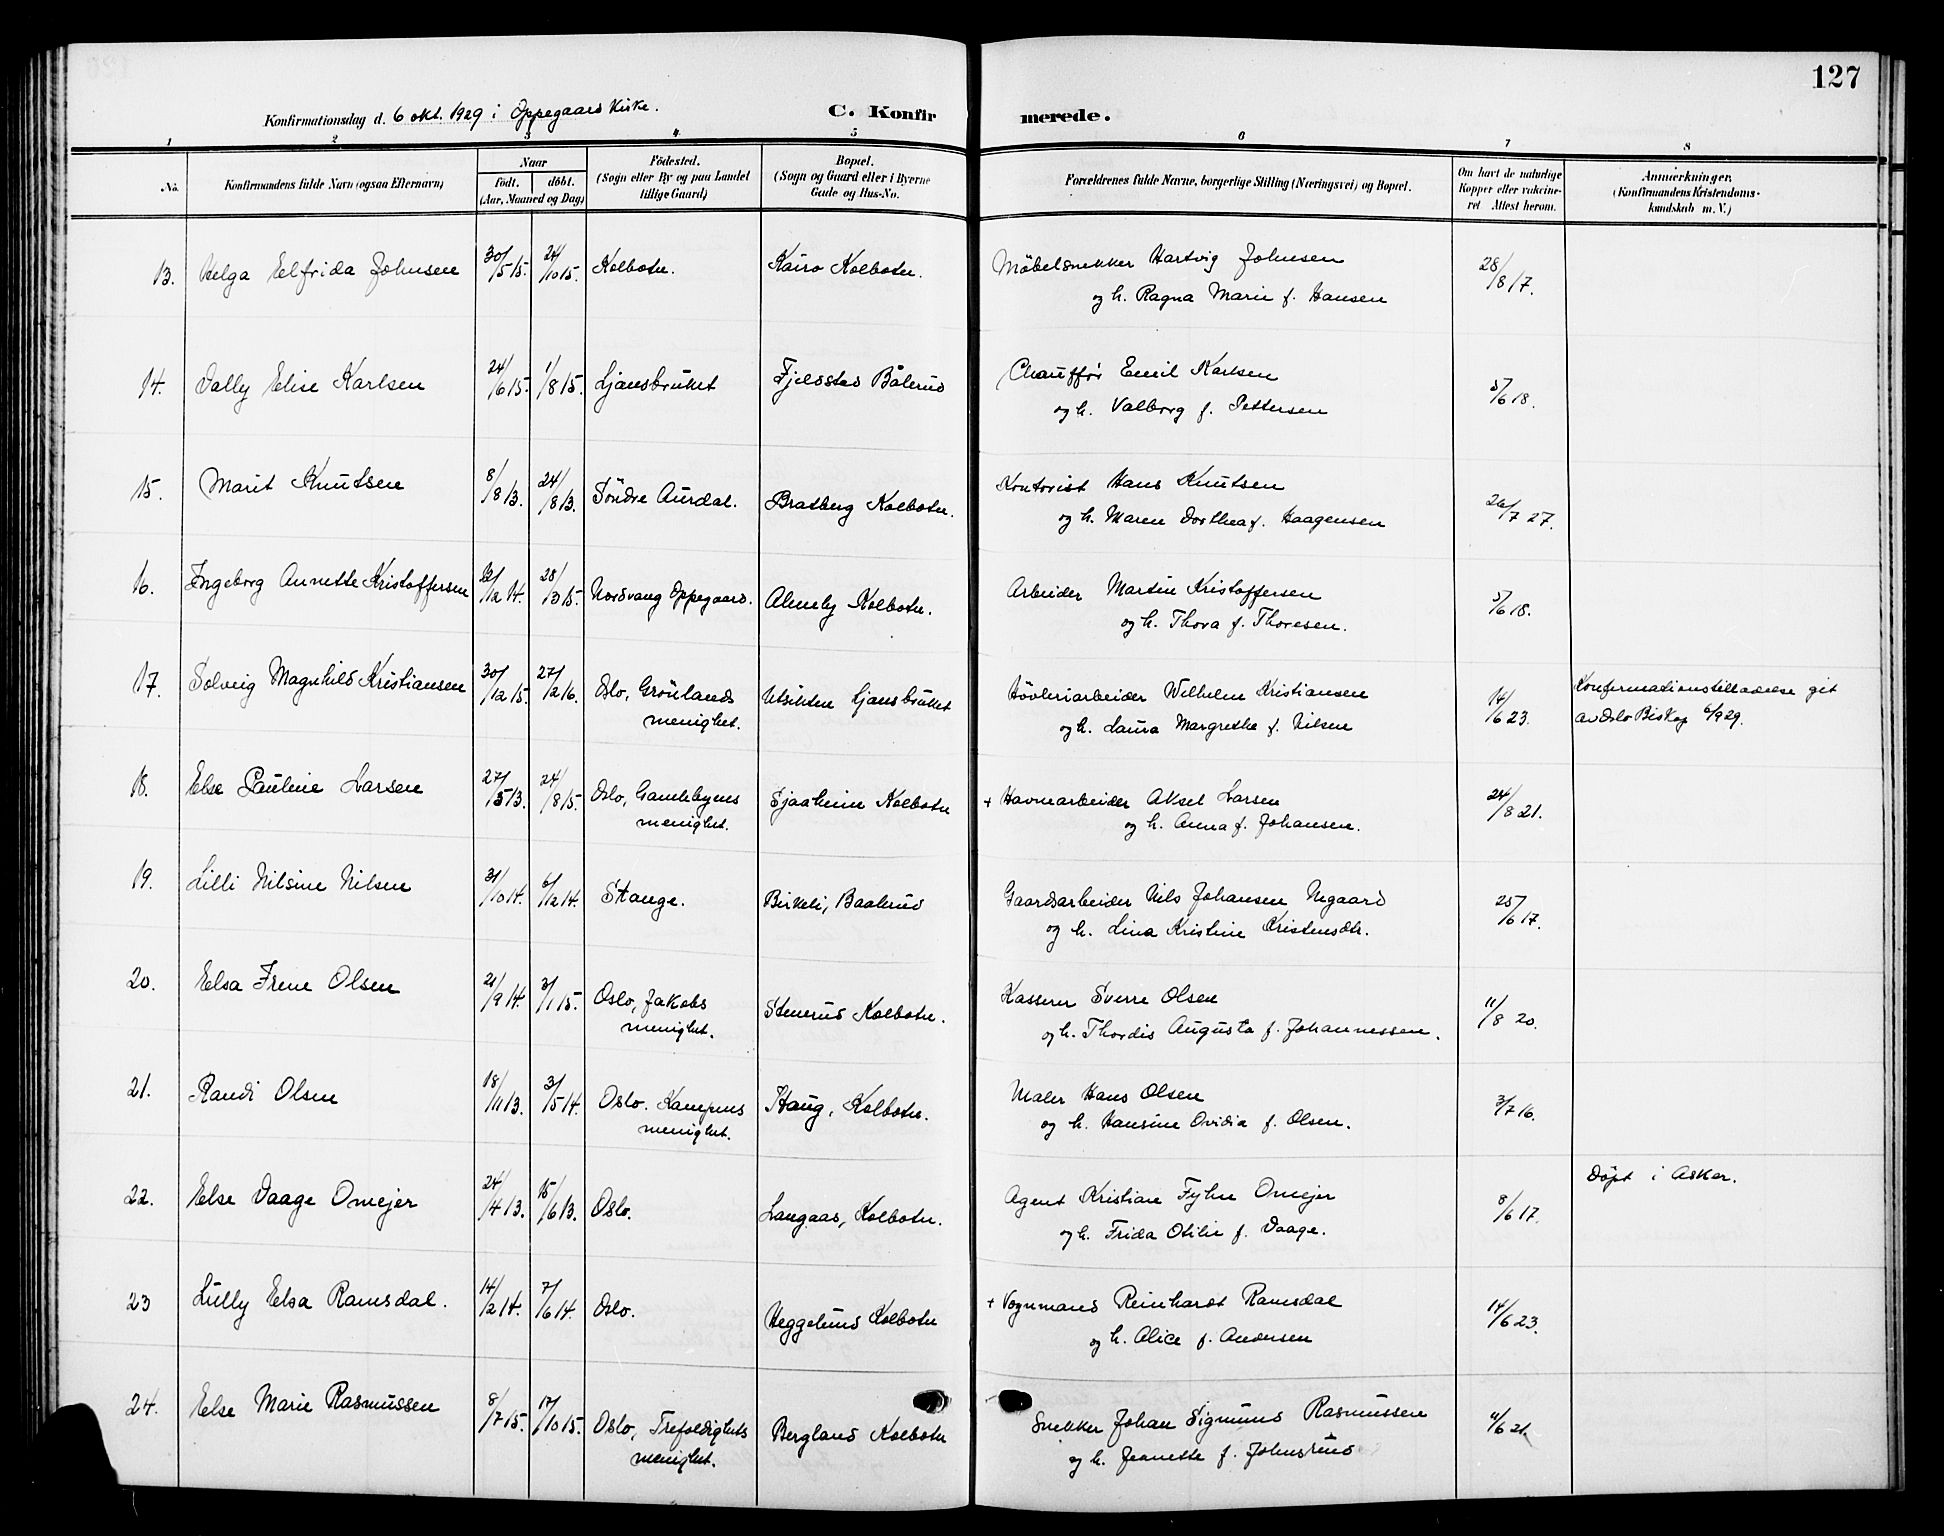 127
Konfirmationsdag d. 6 okt. 1929 i Oppegaard Kirke.
C. Konfirmerede.
1 2 3 4 5 6 7 8
No.
Konfirmandens fulde Navn (ogsaa Efternavn)
Naar
født. døbt.
(Aar, Maaned og Dag)
Fødested.
(Sogn eller By og paa Landet
tillige Gaard)
Bopæl.
(Sogn og Gaard eller i Byerne
Gade og Hus-No.
Forældrenes fulde Navne, borgerlige Stilling (Næringsvei) og Bopæl.
Om havt de naturlige
Kopper eller vakcine-
ret Attest herom.
Anmærkninger.
(Konfirmandens Kristendoms-
kundskab m. V.)
13. Helga Elfrida Johnsen 30/5 15. 24/10 15. Kolbotn. Kairo Kolbotn. Möbelsnekker Hartvig Johnsen 28/8 17.
og h. Ragna Marie f. Hansen
14. Dally Elise Karlsen 24/6 15. 1/8 15. Ljansbruket Fjeldstad Bålerud Chauffør Emil Karlsen 5/6 18.
og h. Valborg f. Pettersen
15. Marit Knutsen 8/8 13. 24/8 13. Söndre Aurdal. Bratberg Kolbotn. Kontorist Hans Knutsen 26/7 27.
og h. Maren Dorthea f. Haagensen
16. Ingeborg Annette Kristoffersen 12/12 14. 28/3 15. Nordvang Oppegaard. Almely Kolbotn. Arbeider Martin Kristoffersen 5/6 18.
og h. Thora f. Thoresen.
17. Solveig Magnhild Kristiansen 30/12 15. 27/2 16. Oslo, Grönlands Utsikten Ljansbruket Hövleriarbeider Wilhelm Kristiansen 14/6 23. Konfirmationstilladelse git
menighet. og h. Laura Margrethe f. Nilsen av Oslo Biskop 6/9 29.
18. Else Pauline Larsen 27/5 13. 24/8 15. Oslo, Gamlebyens Sjaaheim Kolbotn + Havnearbeider Aksel Larsen 24/8 21.
menighet. og h. Anna f. Johansen.
19. Lilli Nilsine Nilsen 31/10 14. 6/12 14. Stange. Birkeli, Baalerud Gaardsarbeider Nils Johansen Negaard 25/6 17.
og h. Lina Kristine Kristensdtr.
20. Elsa Irene Olsen 21/9 14. 3/1 15. Oslo, Jakobs Stenerud Kolbotn. Kasserer Sverre Olsen 11/8 20.
menighet. og h. Thordis Augusta f. Johannessen.
21. Randi Olsen 18/11 13. 3/5 14. Oslo. Kampens Haug, Kolbotn. Maler Hans Olsen 3/7 16.
menighet. og h. Hansine Ovidia f. Olsen.
22. Else Daage Omejer 24/4 13. 15/6 13. Oslo. Langaas, Kolbotn. Agent Kristian Fyhn Omejer 8/6 17. Döpt i Asker.
og h. Frida Otilie f. Daage.
23 Lully Elsa Ramsdal. 14/2 14. 7/6 14. Oslo. Heggelund Kolbotn + Vognmand Reinhardt Ramsdal 14/6 23.
og h. Alice f. Andersen
24. Else Marie Rasmussen 8/7 15. 17/10 15. Oslo, Trefoldighets Bergland Kolbotn Snekker Johan Sigmund Rasmussen 4/6 21.
menighet. og h. Jeanette f. Johnsrud